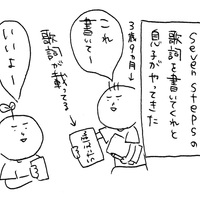 seven stepsの
歌詞を書いてくれと
息子がやってきた
3歳9ヵ月→
これ
書いてー
歌詞が載ってる→
いいよー